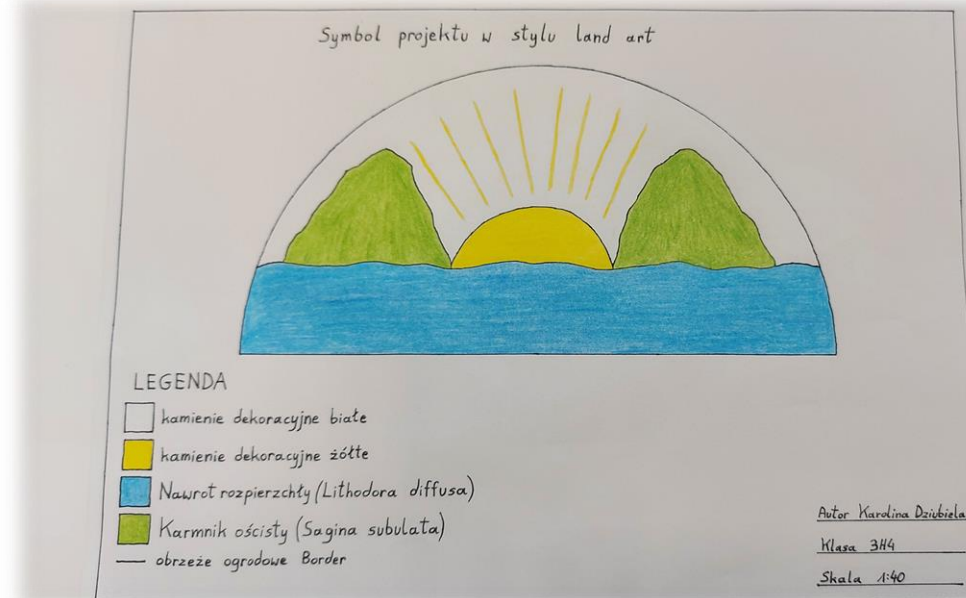 Symbol projektu w stylu land art
LEGENDA
kamienie dekoracyjne białe
kamienie dekoracyjne żółte
Nawrot rozpierzchły (Lithodora diffusa)
Karmnik ościsty (Sagina subulata)
obrzeże ogrodowe Border
Autor Karolina Dziubiela
Klasa 3H4
Skala 1:40